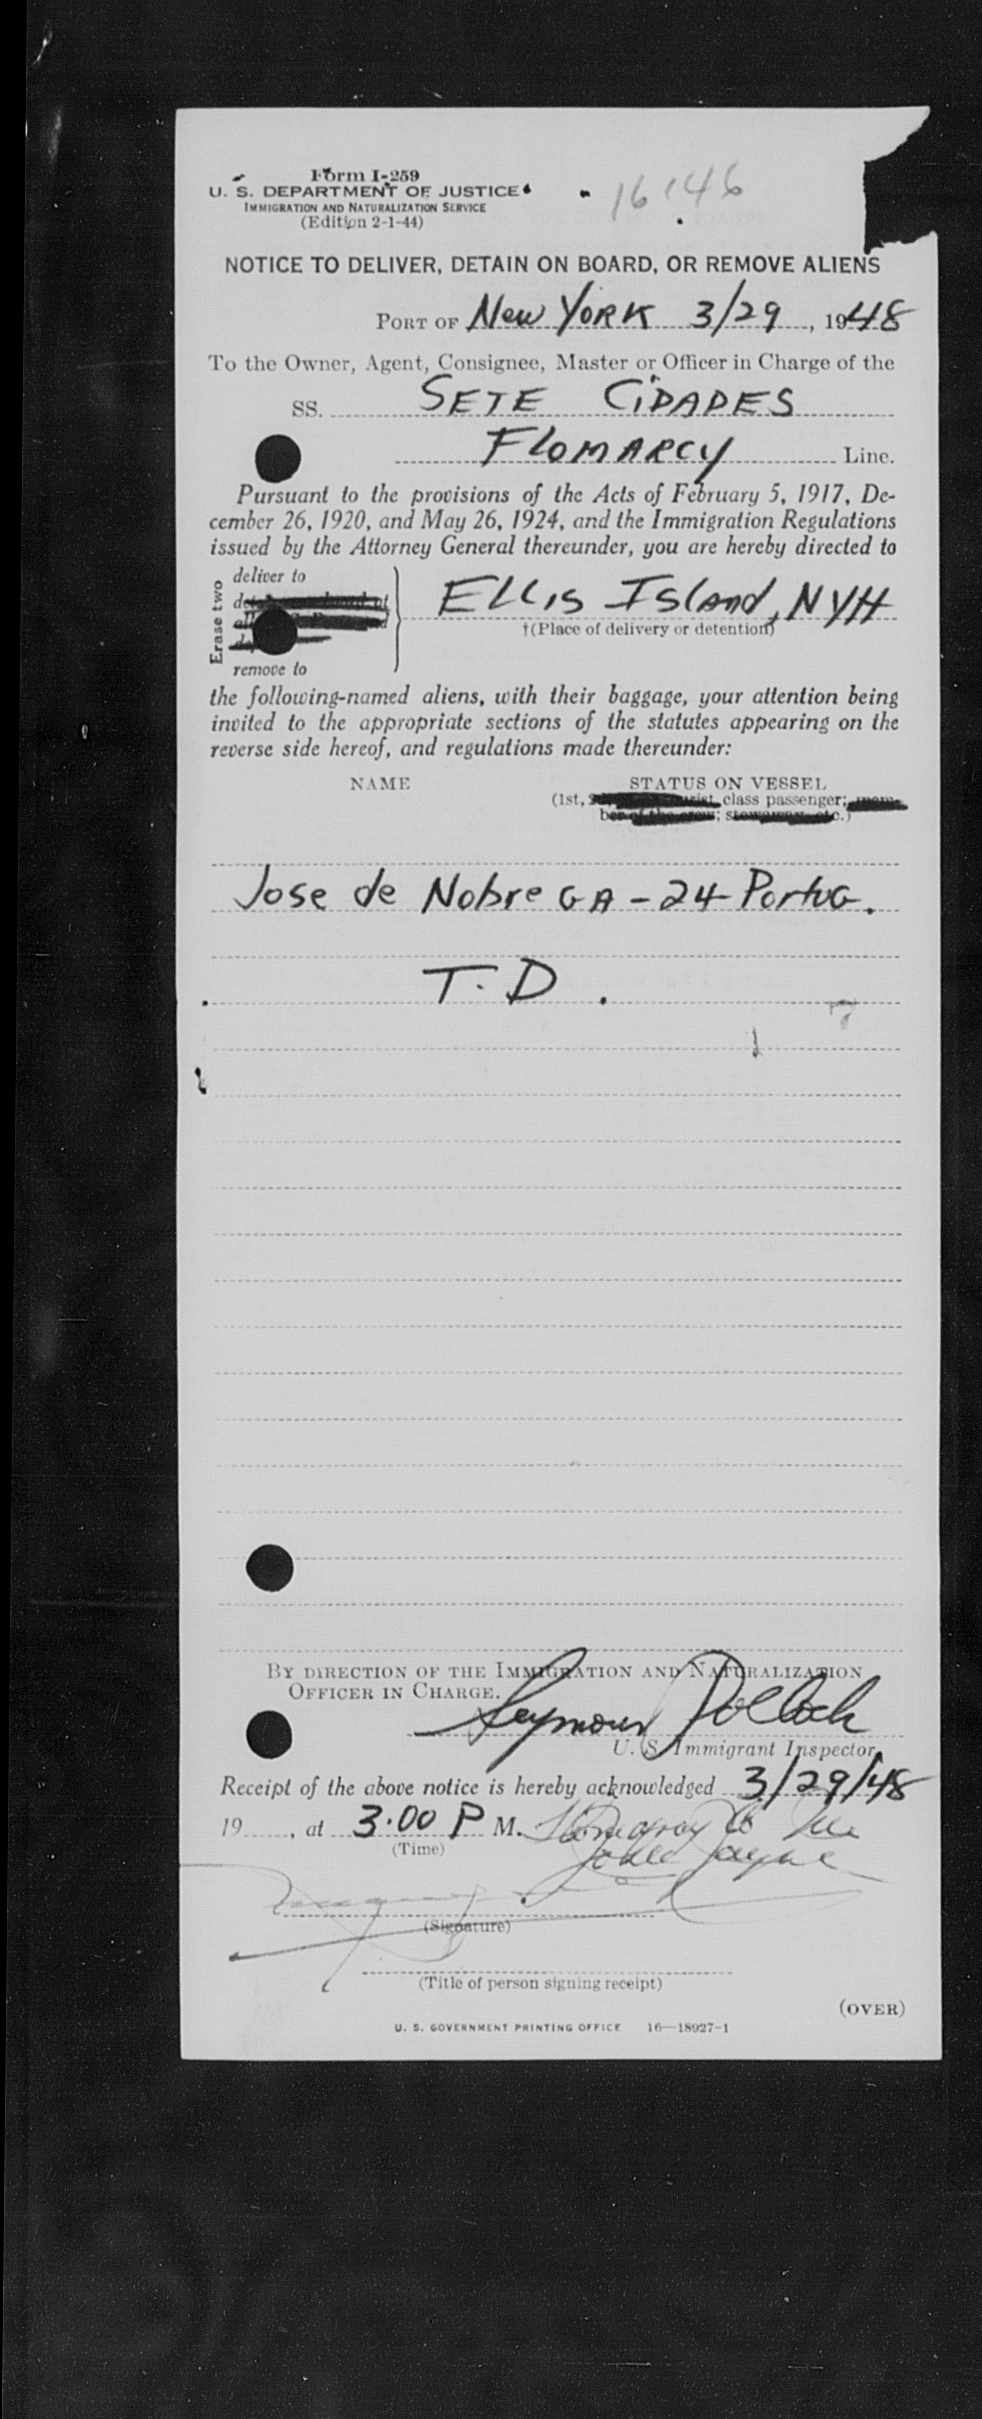 Form I-259
U. S. DEPARTMENT OF JUSTICE
IMMIGRATION AND NATURALIZATION SERVICE
(Edition 2-1-44)
16146
NOTICE TO DELIVER, DETAIN ON BOARD, OR REMOVE ALIENS
PORT OF New York 3/29, 1948
To the Owner, Agent, Consignee, Master or Officer in Charge of the
SS. SETE CIDADES
FLOMARCY Line.
Pursuant to the provisions of the Acts of February 5, 1917, De-
cember 26, 1920, and May 26, 1924, and the Immigration Regulations
issued by the Attorney General thereunder, you are hereby directed to
Erase two
deliver to
remove to
Ellis Island, NYH
†(Place of delivery or detention)
the following-named aliens, with their baggage, your attention being
invited to the appropriate sections of the statutes appearing on the
reverse side hereof, and regulations made thereunder:
NAME STATUS ON VESSEL
(1st, class passenger;
Jose de Nobrega - 24 Portug.
T.D.
BY DIRECTION OF THE IMMIGRATION AND NATURALIZATION
OFFICER IN CHARGE.
Seymour Pollock
U. S. Immigrant Inspector
Receipt of the above notice is hereby acknowledged 3/29/48
19, at 3:00 P M.
(Time)
(Signature)
(Title of person signing receipt)
(OVER)
U. S. GOVERNMENT PRINTING OFFICE 16—18927-1